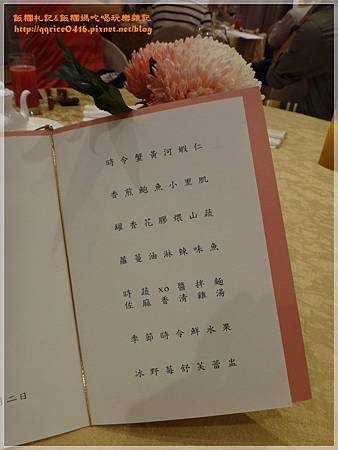 飯糰札記&飯糰媽吃喝玩樂雜記
http://qqrice0416.pixnet.net/blog
時令蟹黃河蝦仁
香煎鮑魚小里肌
罐香花膠煨山蔬
蘿蔓油淋辣味魚
時蔬xo醬拌麵
佐麻香清雞湯
季節時令鮮水果
冰野莓舒芙蕾盅
二日